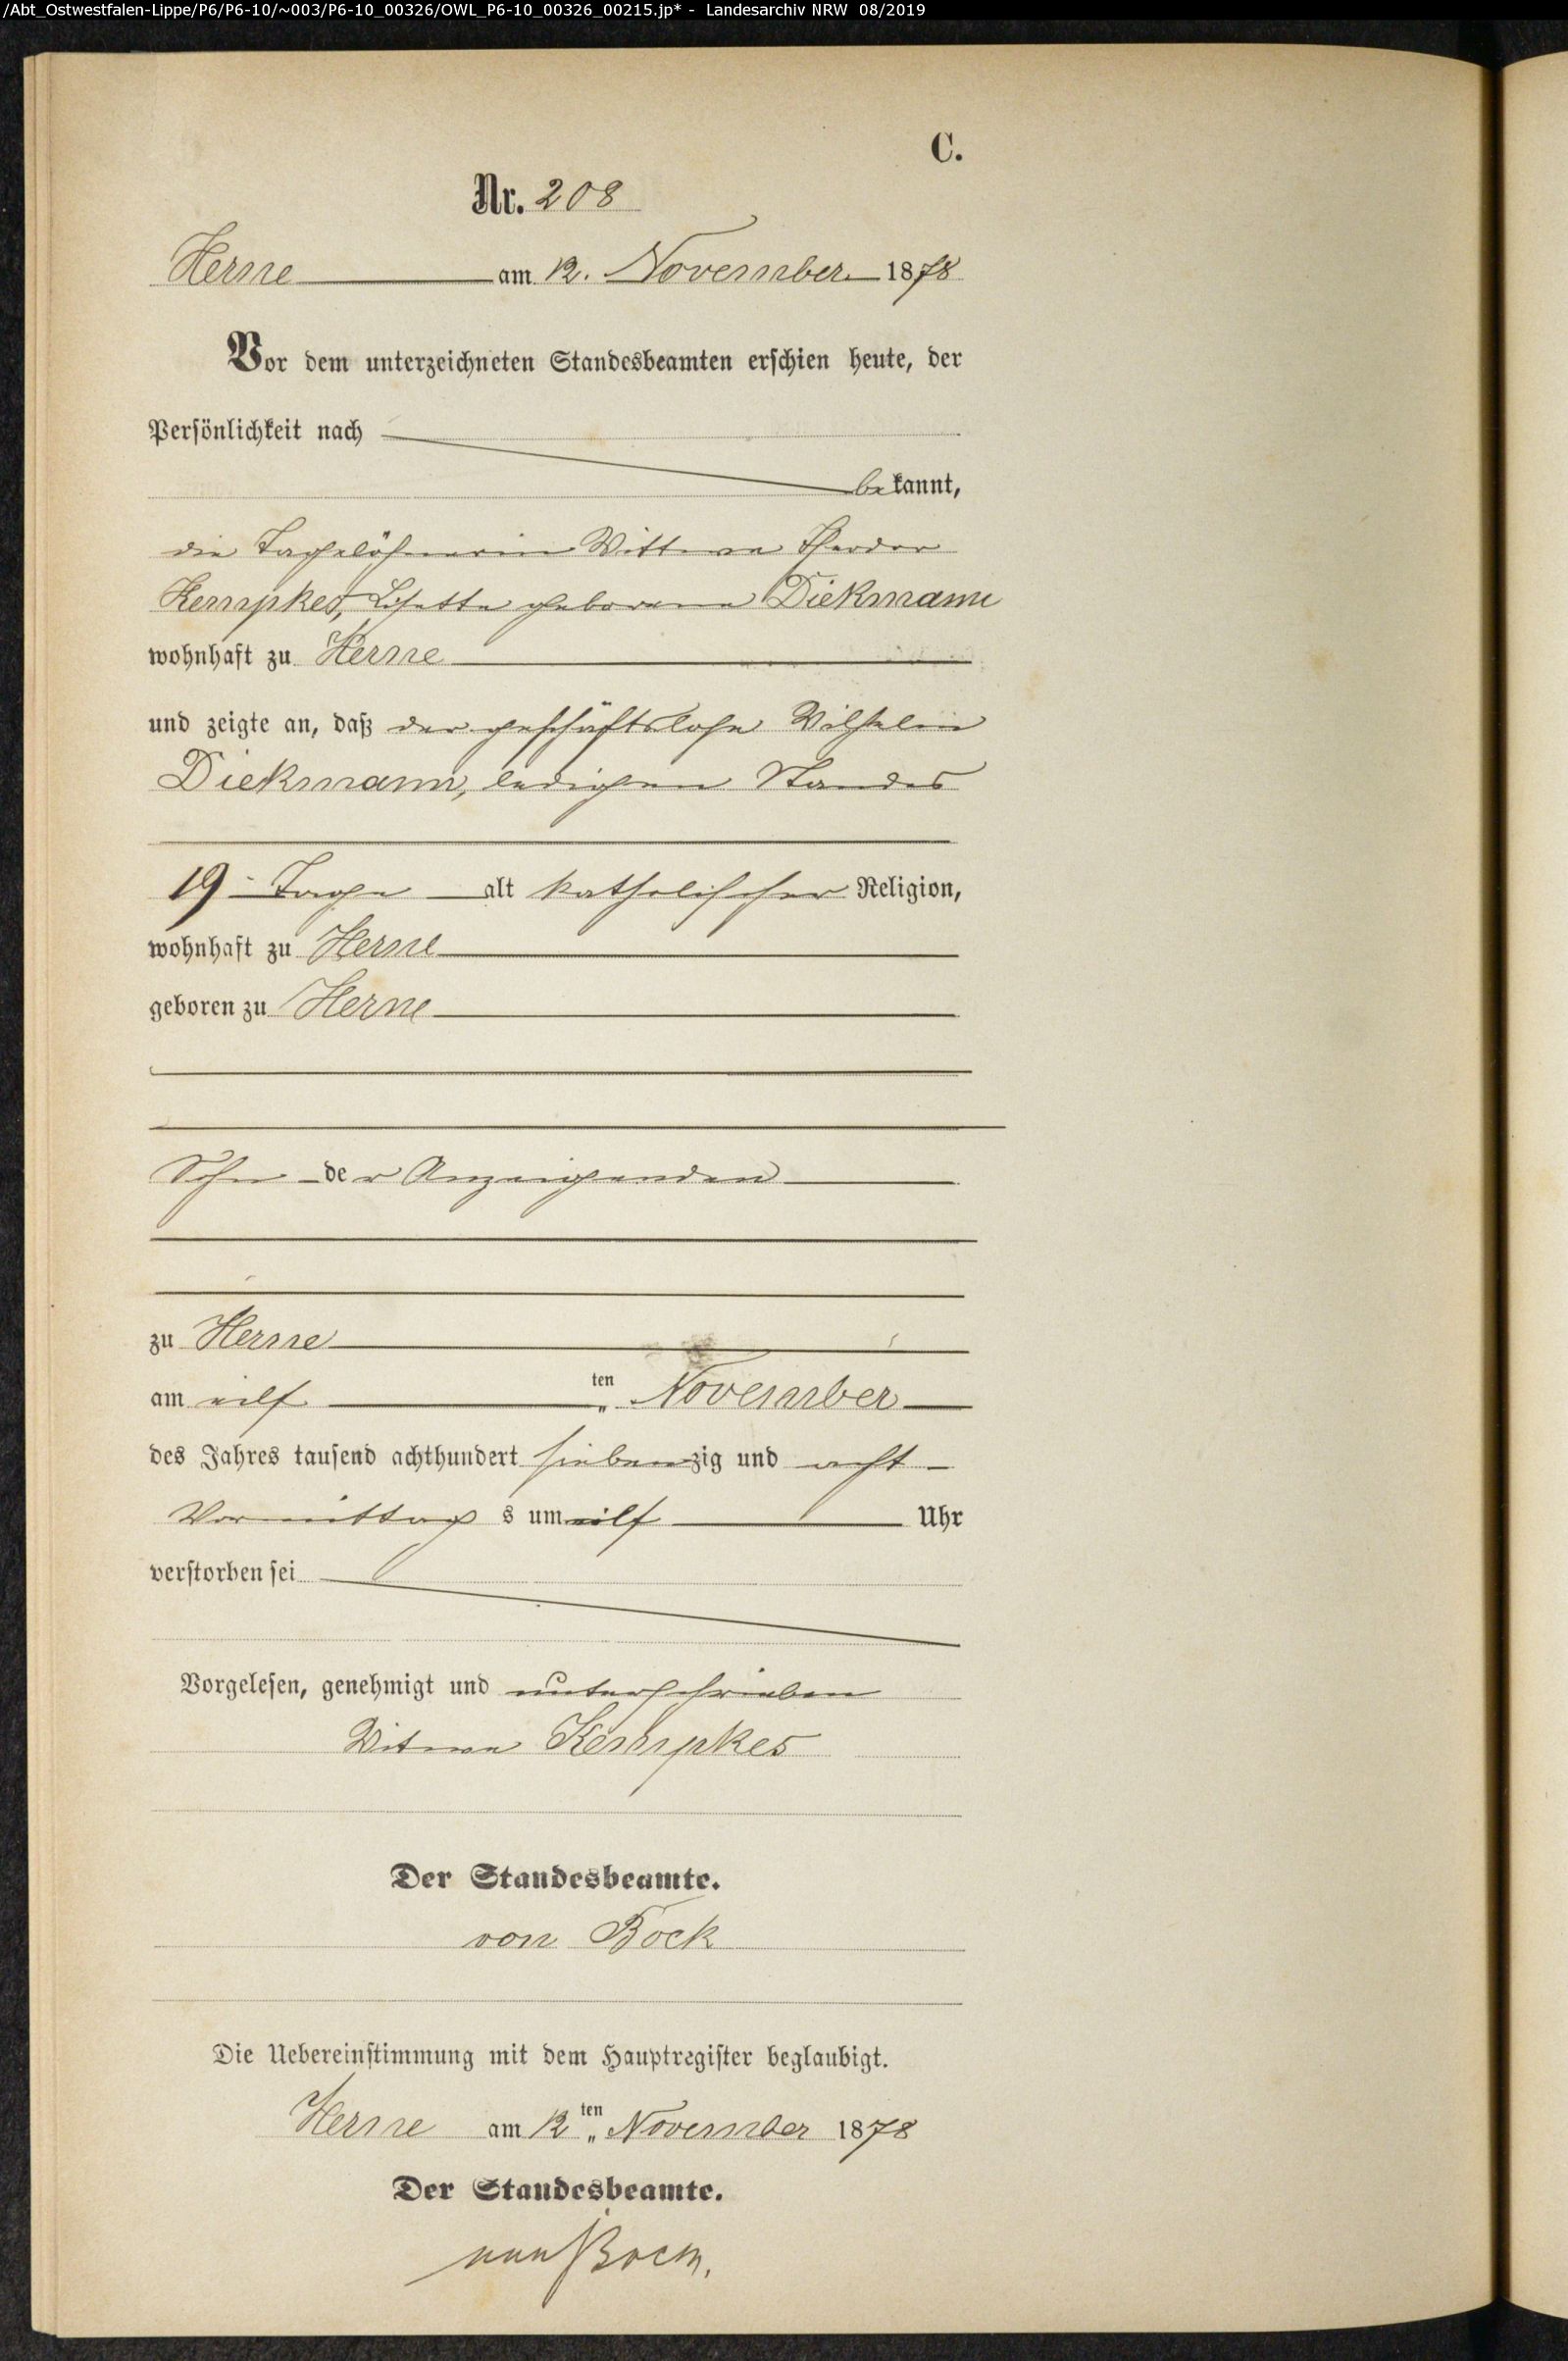 /Abt_Ostwestfalen-Lippe/P6/P6-10/~003/P6-10_00326/OWL_P6-10_00326_00215.jp* - Landesarchiv NRW 08/2019
C.
Nr. 208
Herne am 12. November 1878
Vor dem unterzeichneten Standesbeamten erschien heute, der
Persönlichkeit nach
bekannt,
die Tagelöhnerin Wittwe Theodor
Kempkes, Lisette geborene Diekmann
wohnhaft zu Herne
und zeigte an, daß der geschäftslose Wilhelm
Diekmann, ledigen Standes
19 Tage alt katholischer Religion,
wohnhaft zu Herne
geboren zu Herne
Sohn der Anzeigenden
zu Herne
am eilf ten November
des Jahres tausend achthundert siebenzig und acht
Vormittags um eilf Uhr
verstorben sei
Vorgelesen, genehmigt und unterschrieben
Witwe Kempkes
Der Standesbeamte.
von Bock
Die Uebereinstimmung mit dem Hauptregister beglaubigt.
Herne am 12ten November 1878
Der Standesbeamte.
von Bock.